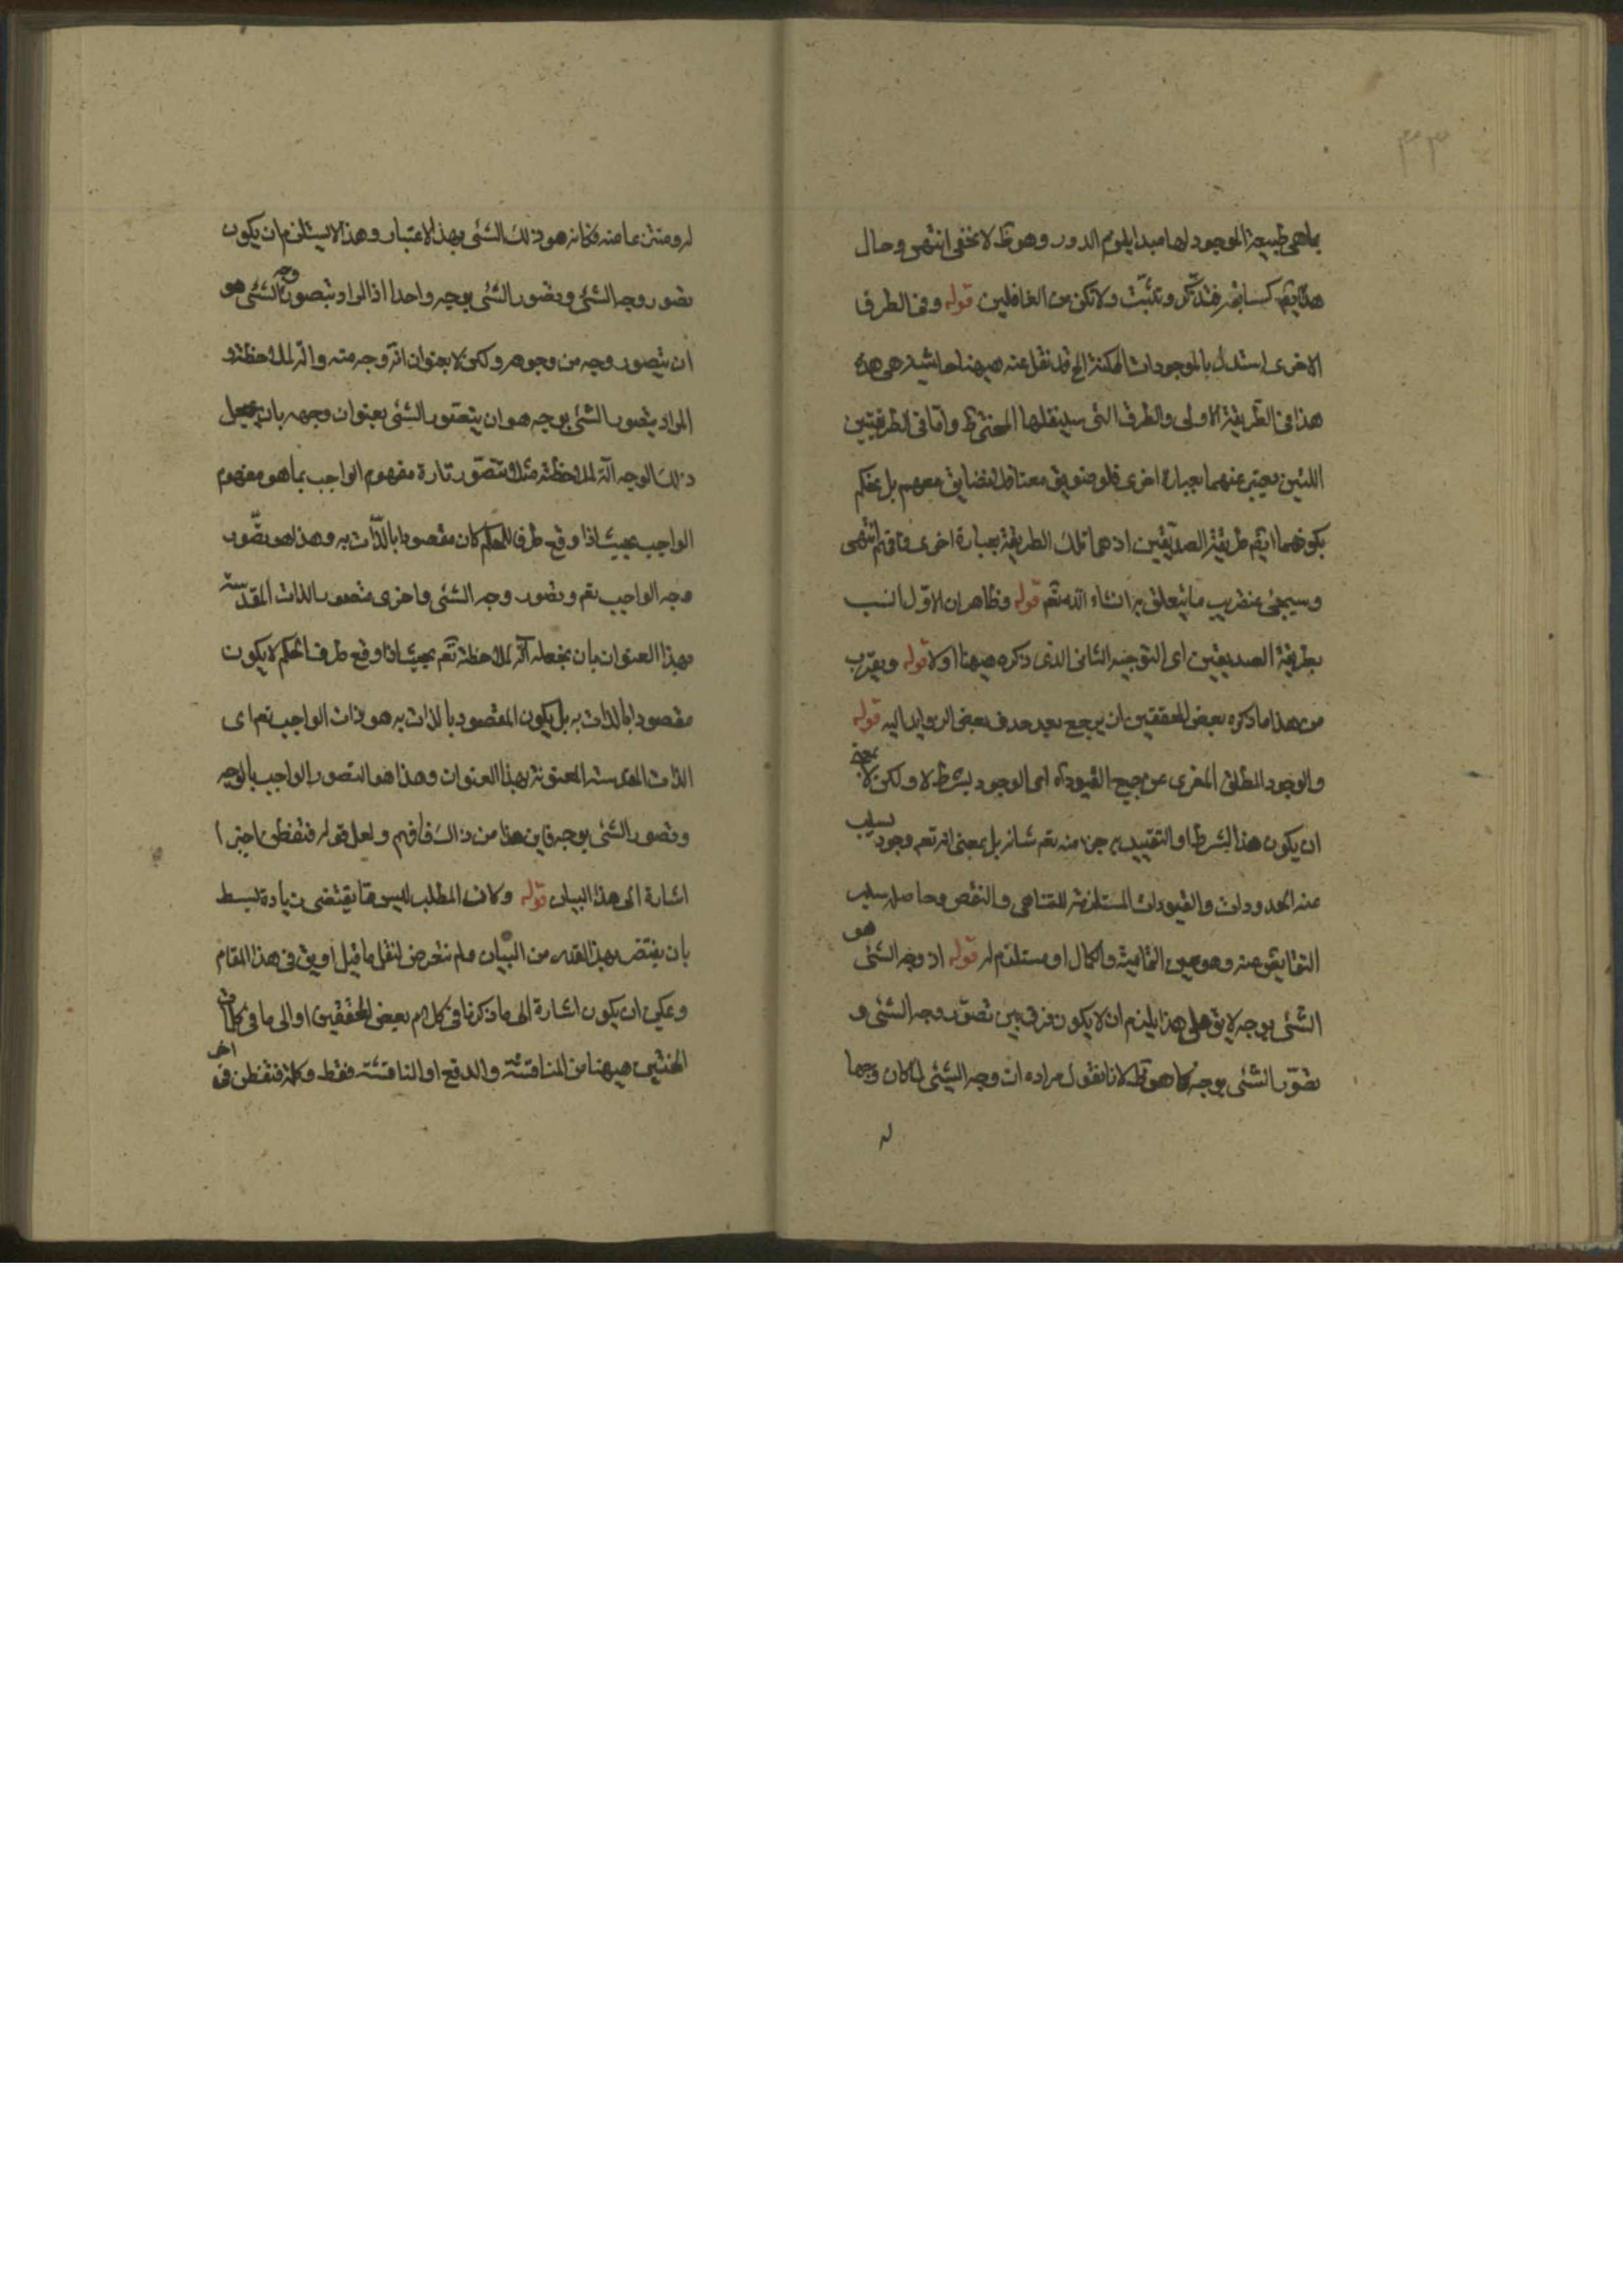 ٣٣
بماهی طبیعة الموجود لها مبدا یلزم الدور وهو قط لا یخفی انتهی وحال
هذا یقم کسابقه فتذکر وتثبت ولا تکن من الغافلین قوله وفی الطرق
الاخری استدل بالموجودات الممکنة الخ قد نقل عنه هیهنا حاشیة هی هذه
هذا فی الطریقة الاولی والطرق التی سینقلها المحشی قط واما فی الطریقتین
اللتین یعبر عنهما بعبارة اخری فلو ضویق معنا فلا نضایق معهم بل نحکم
بکونهما ایقم طریقة الصدیقین اذ هما تلک الطریقة بعبارة اخری فافهم انتهی
وسیجئ عنقریب ما یتعلق به انشاء الله تعم قوله وظاهر ان الاول انسب
بطریقة الصدیقین ای التوجیه الثانی الذی ذکره هیهنا اولا قوله ویقرب
من هذا ما ذکره بعض المحققین ان یرجع بعد حذف بعض الزواید الیه قوله
والوجود المطلق المعری عن جمیع القیود اه ای الوجود بشرط لا ولکن لا بمعنی
ان یکون هذا الشرط او التقیید به جزء منه تعم شانه بل بمعنی انه تعم وجود یسلب
عنه الحدودات والقیودات المستلزمة للتناهی والنقص وحاصله سلب
النقایص عنه وهو عین التمامیة والکمال او مستلزم له قوله اذ وجه الشئ هو
الشئ بوجه لا یق علی هذا یلزم ان لا یکون فرق بین تصور وجه الشئ و
تصور الشئ بوجه کما هو قط لانا نقول مراده ان وجه الشئ لما کان وجها
له
له ومنتزعا منه فکانه هو ذلک الشئ بهذا الاعتبار وهذا لا یستلزم ان یکون
تصور وجه الشئ وتصور الشئ بوجه واحدا اذ المراد بتصور وجه الشئ هو
ان یتصور وجه من وجوهه ولکن لا بعنوان انه وجه منه وآلة لملاحظته و
المراد بتصور الشئ بوجه هو ان یتصور الشئ بعنوان وجهه بان یجعل
ذلک الوجه آلة لملاحظته مثلا نتصور تارة مفهوم الواجب بما هو مفهوم
الواجب بحیث اذا وقع طرفا للحکم کان مقصودا بالذات به وهذا هو تصور
وجه الواجب تعم وتصور وجه الشئ واخری نتصور الذات المقدسة
بهذا العنوان بان نجعله آلة لملاحظته تعم بحیث اذا وقع طرفا لحکم لا یکون
مقصودا بالذات به بل یکون المقصود بالذات به هو ذات الواجب تعم ای
الذات المقدسة المعنونة بهذا العنوان وهذا هو التصور الواجب بالوجه
وتصور الشئ بوجه فاین هذا من ذالک فافهم ولعل قوله فتفطن اخیرا
اشارة الی هذا البیان قوله وکان المطلب لیس مما یقتضی زیادة لبسط
بان یقتضر بهذا القدر من البیان ولم نتعرض لنقل ما قیل او یق فی هذا المقام
ویمکن ان یکون اشارة الی ما ذکرنا فی کلام بعض المحققین او الی ما فی کلمات
المحشین هیهنا من المناقشة والدفع او المناقشة فقط وکلمة فتفطن فی اخر